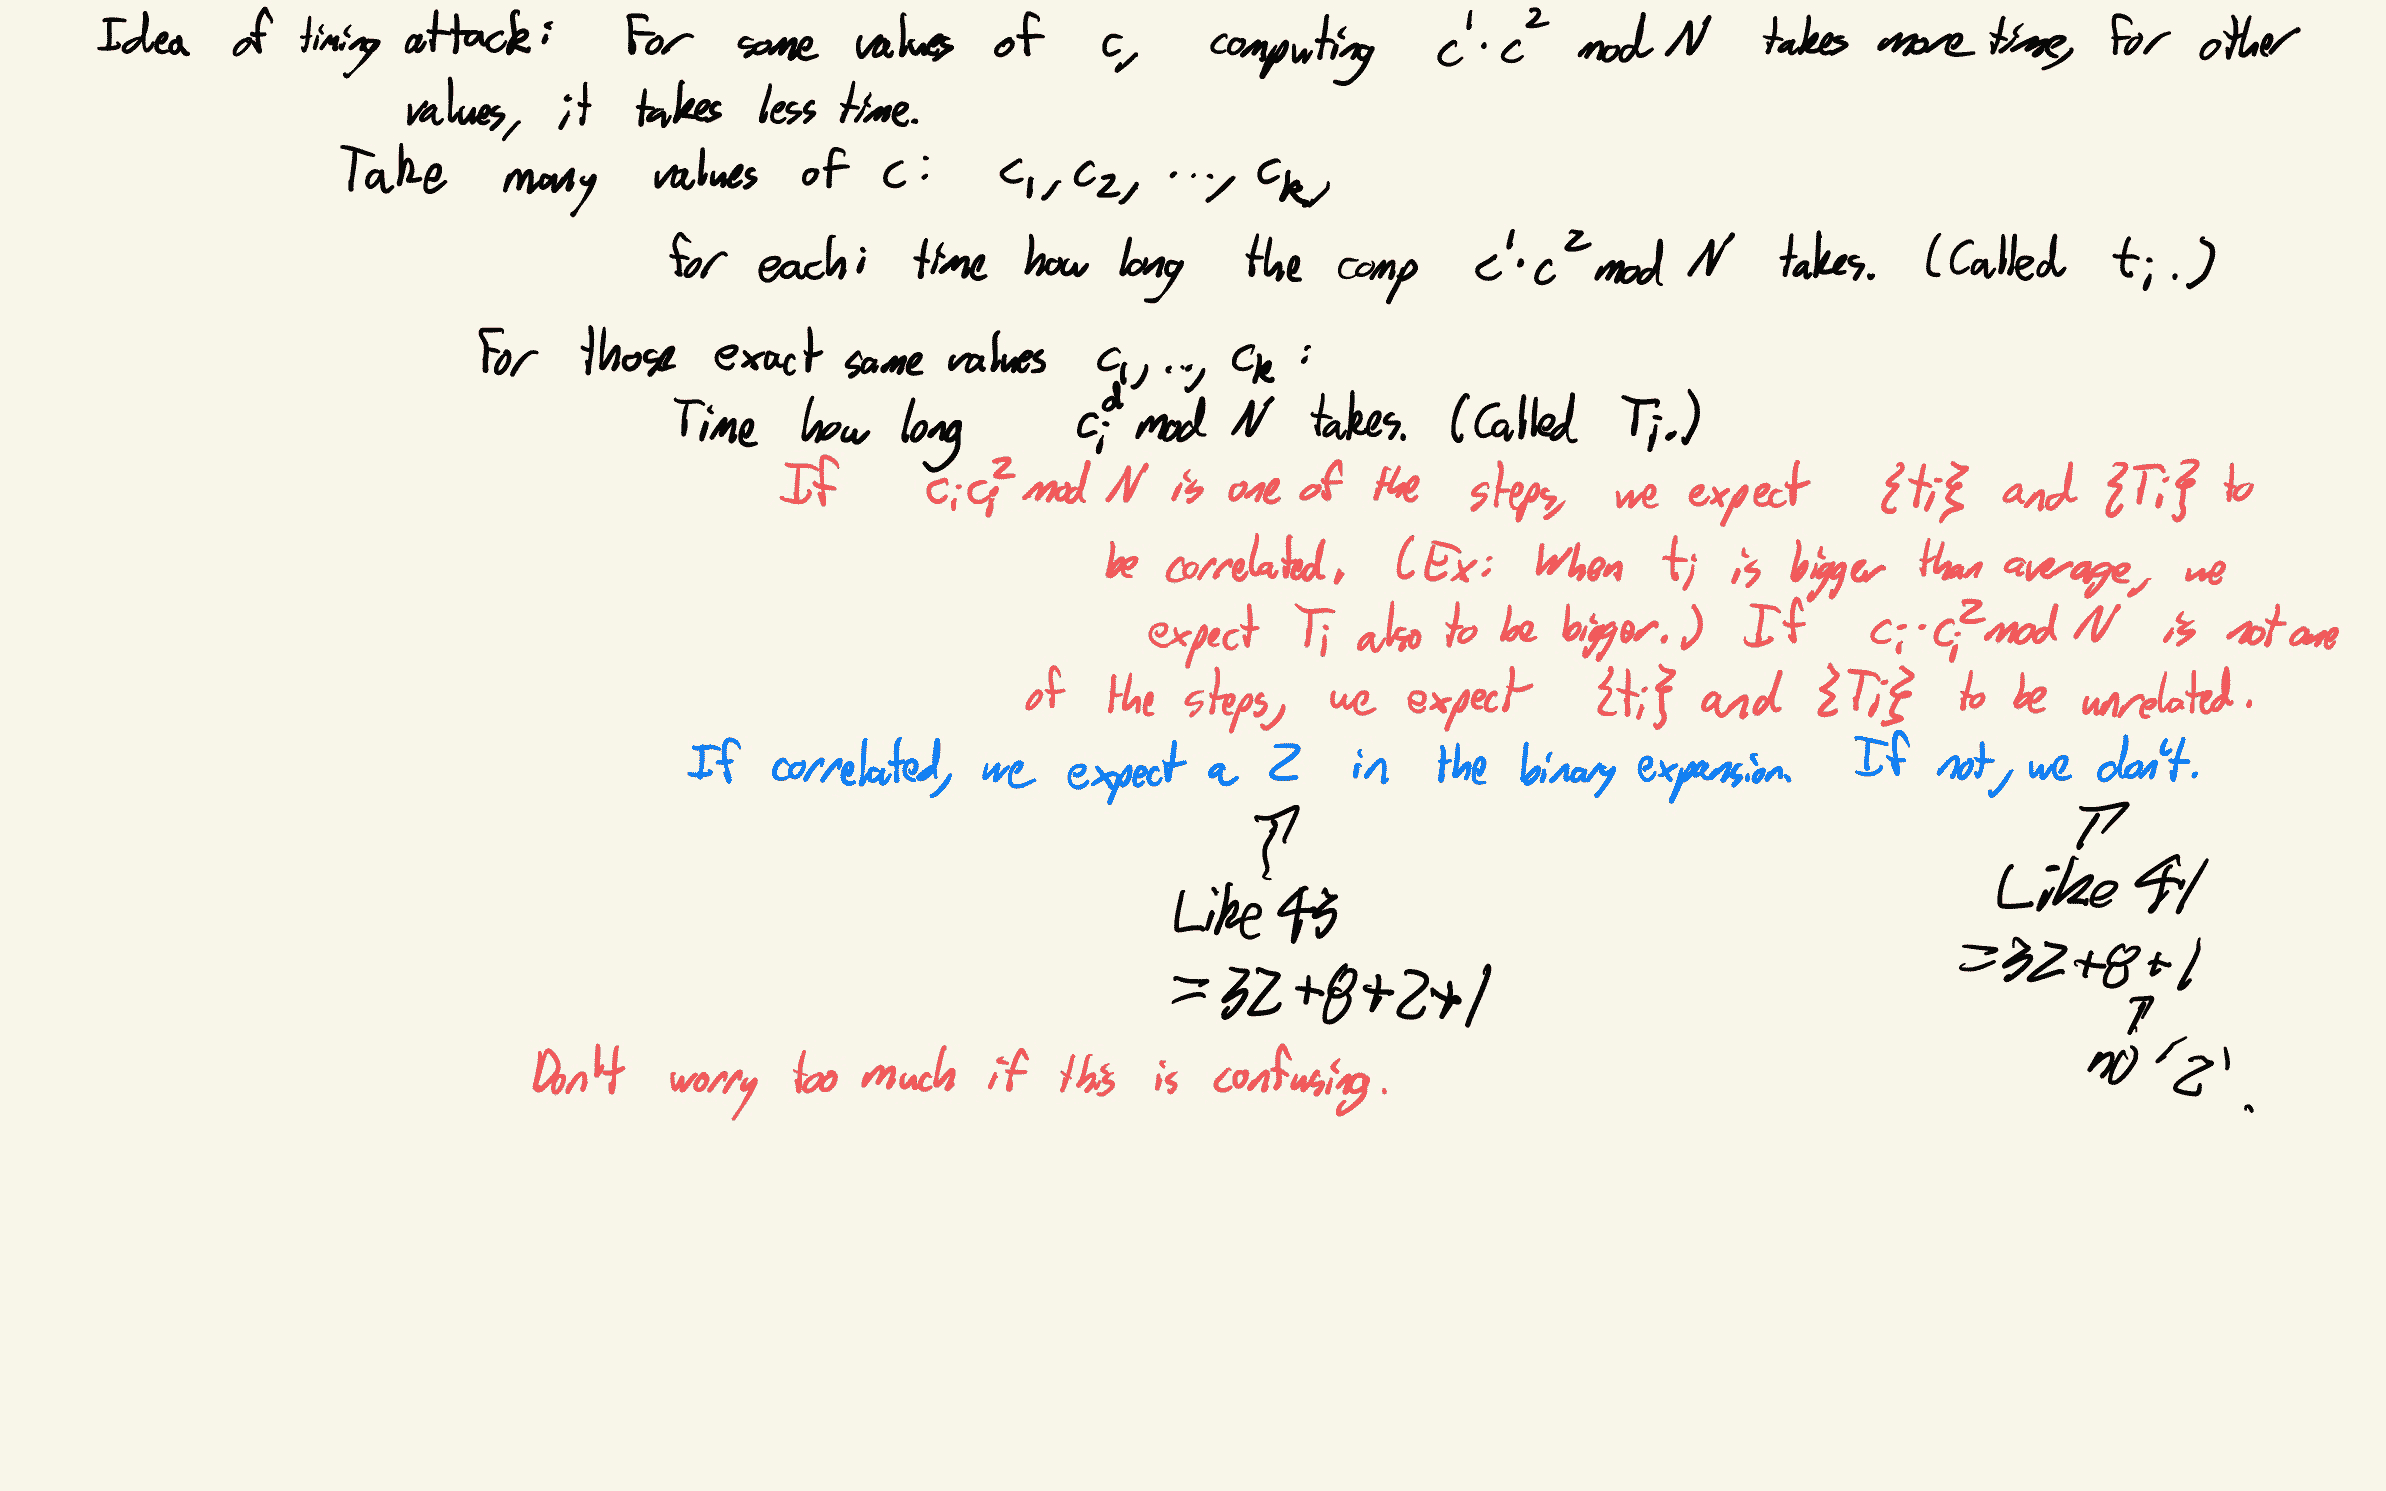 Idea of timing attack: For some values of c, computing c¹·c² mod N takes more time, for other
values, it takes less time.
Take many values of c: c₁, c₂, ..., cₖ,
for each i time how long the comp c¹·c² mod N takes. (Called tᵢ.)
For those exact same values c₁, .., cₖ:
Time how long cᵢᵈ mod N takes. (Called Tᵢ.)
If cᵢcᵢ² mod N is one of the steps, we expect {tᵢ} and {Tᵢ} to
be correlated. (Ex: When tᵢ is bigger than average, we
expect Tᵢ also to be bigger.) If cᵢ·cᵢ² mod N is not one
of the steps, we expect {tᵢ} and {Tᵢ} to be unrelated.
If correlated, we expect a 2 in the binary expansion. If not, we don't.
Like 43
=32+8+2+1
Like 41
=32+8+1
no '2'.
Don't worry too much if this is confusing.